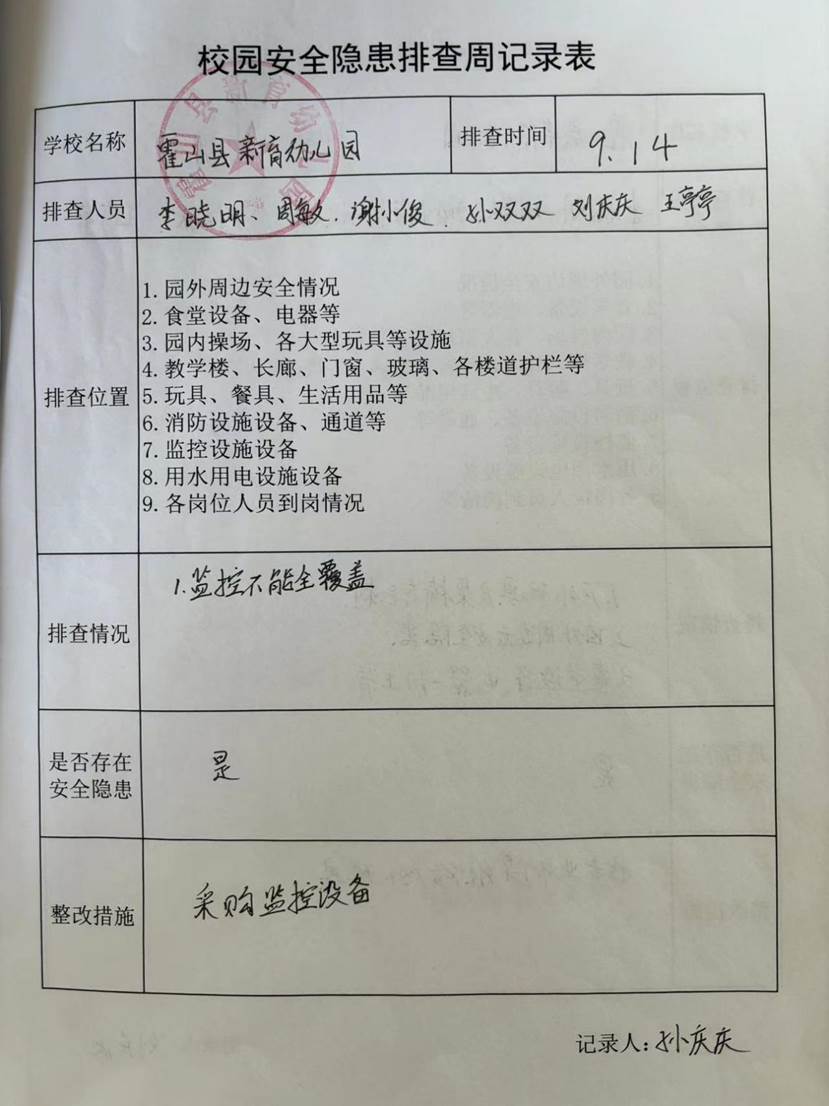 校园安全隐患排查周记录表
学校名称 霍山县新育幼儿园 排查时间 9.14
排查人员 李晓明、周敏、谢小俊、孙双双 刘庆庆 王亭亭
排查位置
1. 园外周边安全情况
2. 食堂设备、电器等
3. 园内操场、各大型玩具等设施
4. 教学楼、长廊、门窗、玻璃、各楼道护栏等
5. 玩具、餐具、生活用品等
6. 消防设施设备、通道等
7. 监控设施设备
8. 用水用电设施设备
9. 各岗位人员到岗情况
排查情况 1.监控不能全覆盖
是否存在
安全隐患
是
整改措施 采购监控设备
记录人：孙庆庆
霍山县新育幼儿园